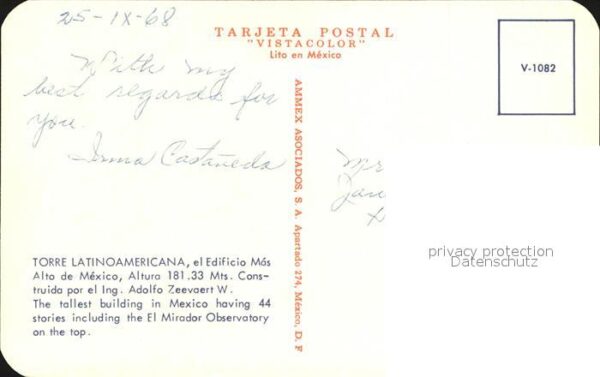 25-IX-68
TARJETA POSTAL
"VISTACOLOR"
Lito en México
V-1082
With my
best regards for
you.
Irma Castañeda
AMMEX ASOCIADOS, S. A. Apartado 274, México, D. F
Mr
privacy protection
Datenschutz
TORRE LATINOAMERICANA, el Edificio Más
Alto de México, Altura 181.33 Mts. Cons-
truida por el Ing. Adolfo Zeevaert W.
The tallest building in Mexico having 44
stories including the El Mirador Observatory
on the top.